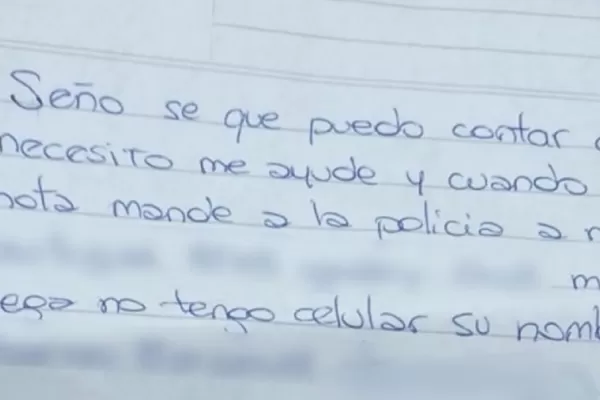 Seño se que puedo contar
necesito me ayude y cuando
nota mande a la policia a
no tengo celular su